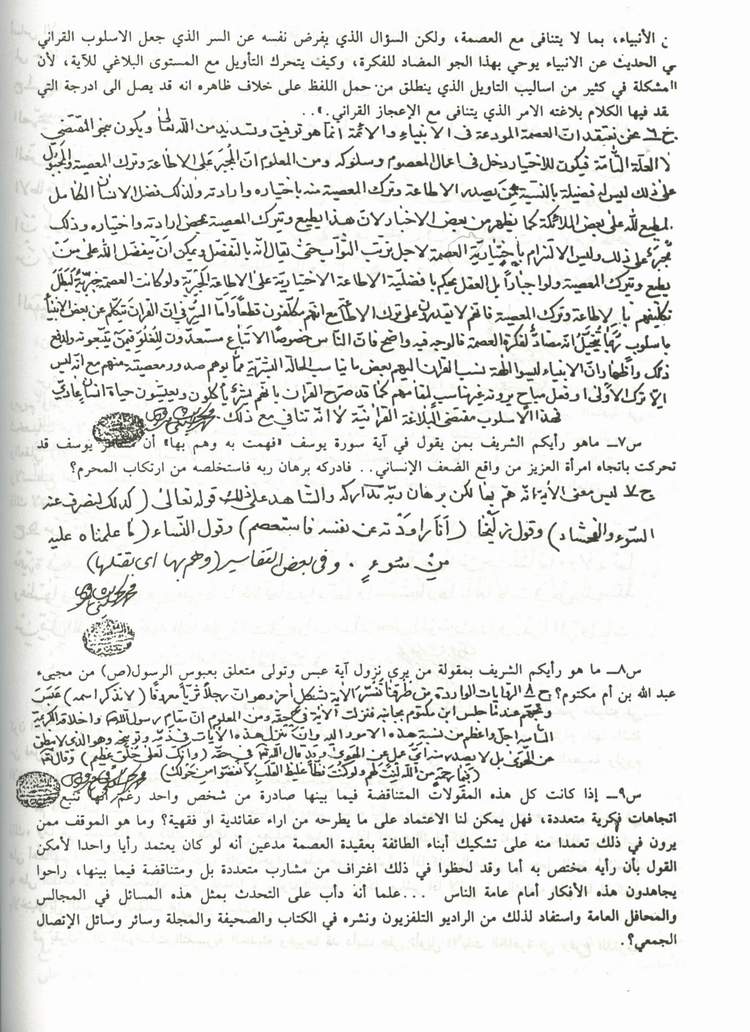 ن الأنبياء، بما لا يتنافى مع العصمة، ولكن السؤال الذي يفرض نفسه عن السر الذي جعل الاسلوب القراني
ي الحديث عن الانبياء يوحي بهذا الجو المضاد للفكرة، وكيف يتحرك التأويل مع المستوى البلاغي للآية، لأن
المشكلة في كثير من اساليب التاويل الذي ينطلق من حمل اللفظ على خلاف ظاهره انه قد يصل الى ادرجة التي
قد فيها الكلام بلاغته الامر الذي يتنافى مع الإعجاز القراني.
ج٦ نحن نعتقد ان العصمة المودعة في الانبياء والائمة انما هو توفيق وتسديد من الله تعالى ويكون بنحو المقتضي
لا العلة التامة فيكون للاختيار دخل في اعمال المعصوم وسلوكه ومن المعلوم ان المجبر على الاطاعة وترك المعصية
على ذلك ليس له فضيلة بالنسبة يصدر الاطاعة وترك المعصية منه باختياره وارادته ولذلك فضل الانسان الكامل
المطيع لله على بعض الملائكة كما يظهر من بعض الاخبار لان هذا يطيع ويترك المعصية بمحض ارادته واختياره وذلك
على ذلك وليس الالتزام باختيارية العصمة لاجل ترتب الثواب حتى يقال انه بالتفضل ويمكن ان يتفضل الله على من
يطيع وترك المعصية ولو اجبارا بل العقل يحكم بافضلية الاطاعة الاختيارية على الاطاعة الجبرية ولو كانت العصمة جبرية لبطل
تكليفهم بالاطاعة وترك المعصية فانهم لا يقدرون على ترك الاطاعة مع انهم مكلفون قطعا واما السر في ان القران تكلم عن بعض الانبياء
باسلوب ربما يتخيل انه مضاد لفكرة العصمة فالوجه فيه واضح فان الناس خصوصا الاتباع مستعدون للغلو فيمن يتبعونه ولدفع
ذلك واظهار ان الانبياء ليسوا الهة نسب القران اليهم بعض ما يناسب الحالة البشرية مما يوهم صدور معصية منهم مع انه ليس
الا ترك الاولى او فعل مباح يرونه غير مناسب لمقامهم كما قد صرح القران بانهم بشر ياكلون ويعيشون حياة انسان عادي
فهذا الاسلوب مقتضى البلاغة القرانية لا انه تنافي مع ذلك.
س٧ـ ماهو رأيكم الشريف بمن يقول في آية سورة يوسف «فهمت به وهم بها» أن يوسف قد
تحركت باتجاه امرأة العزيز من واقع الضعف الإنساني.. فادركه برهان ربه فاستخلصه من ارتكاب المحرم؟
ج٧ ليس معنى الاية انه هم بها لكن برهان ربه تداركه والشاهد على ذلك قوله تعالى (كذلك لنصرف عنه
السوء والفحشاء) وقول زليخا (أنا راودته عن نفسه فاستعصم) وقول النساء (ما علمناه عليه
من سوءٍ). وفي بعض التفاسير (وهم بها اي بقتلها)
س٨ـ ما هو رأيكم الشريف بمقولة من يري بنزول آية عبس وتولى متعلق بعبوس الرسول(ص) من مجيىء
عبد الله بن أم مكتوم؟ ج٨ الروايات الواردة من طرقنا تفسر الاية بشكل اخر وهو ان رجلا ثريا معروفا (لا نذكر اسمه) عبس
عندما جلس ابن مكتوم بجانبه فنزلت الاية في ومن المعلوم ان مقام رسول الله واخلاقه الكريمة
السامية اجل واعظم من نسبة هذه الامور اليه وان تنزل هذه الايات في ذمه وتوبيخه وهو الذي لا ينطق
عن الهوى بل لا يصدر منه اي عمل عن الهوى وقد قال الله تعالى في حقه (وانك لعلى خلق عظيم) وقال
(فبما رحمة من الله لنت لهم ولو كنت فظا غليظ القلب لانفضوا من حولك)
س٩ـ إذا كانت كل هذه المقولات المتناقضة فيما بينها صادرة من شخص واحد رغم أنها تتبع
اتجاهات فكرية متعددة، فهل يمكن لنا الاعتماد على ما يطرحه من اراء عقائدية او فقهية؟ وما هو الموقف ممن
يرون في ذلك تعمدا منه على تشكيك أبناء الطائفة بعقيدة العصمة مدعين أنه لو كان يعتمد رأيا واحدا لأمكن
القول بأن رأيه مختص به أما وقد لحظوا في ذلك اغتراف من مشارب متعددة بل ومتناقضة فيما بينها، راحوا
يجاهدون هذه الأفكار أمام عامة الناس ...علما أنه دأب على التحدث بمثل هذه المسائل في المجالس
والمحافل العامة واستفاد لذلك من الراديو التلفزيون ونشره في الكتاب والصحيفة والمجلة وسائر وسائل الإتصال
الجمعي؟.